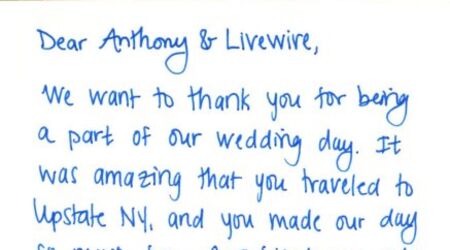 Dear Anthony & Livewire,
We want to thank you for being
a part of our wedding day. It
was amazing that you traveled to
Upstate NY, and you made our day